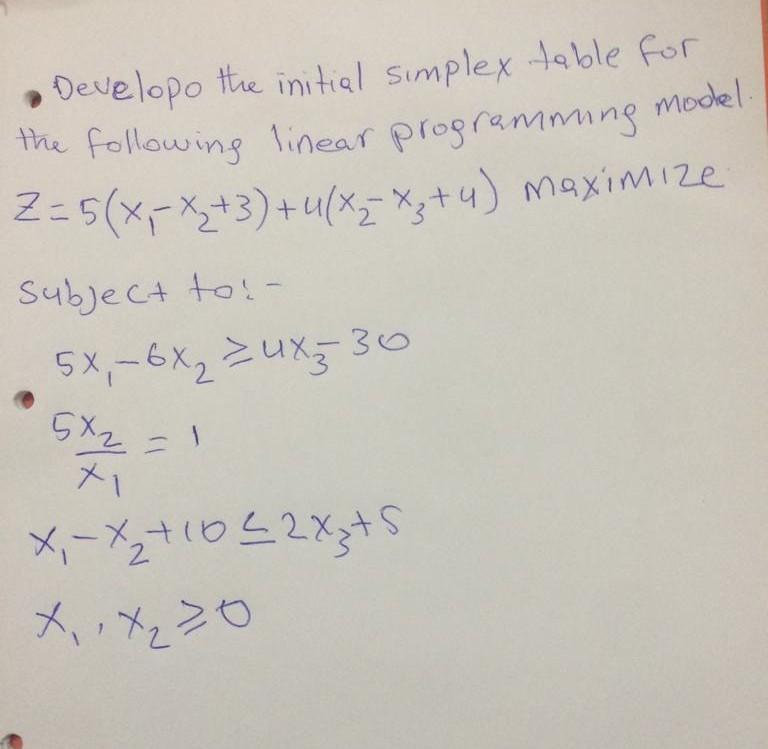 • Developo the initial simplex table for
the following linear programming model.
Z = 5(x₁-x₂+3)+4(x₂-x₃+4) maximize
Subject to:-
5x₁-6x₂ ≥ 4x₃-30
5x₂/x₁ = 1
x₁-x₂+10 ≤ 2x₃+5
x₁, x₂ ≥ 0